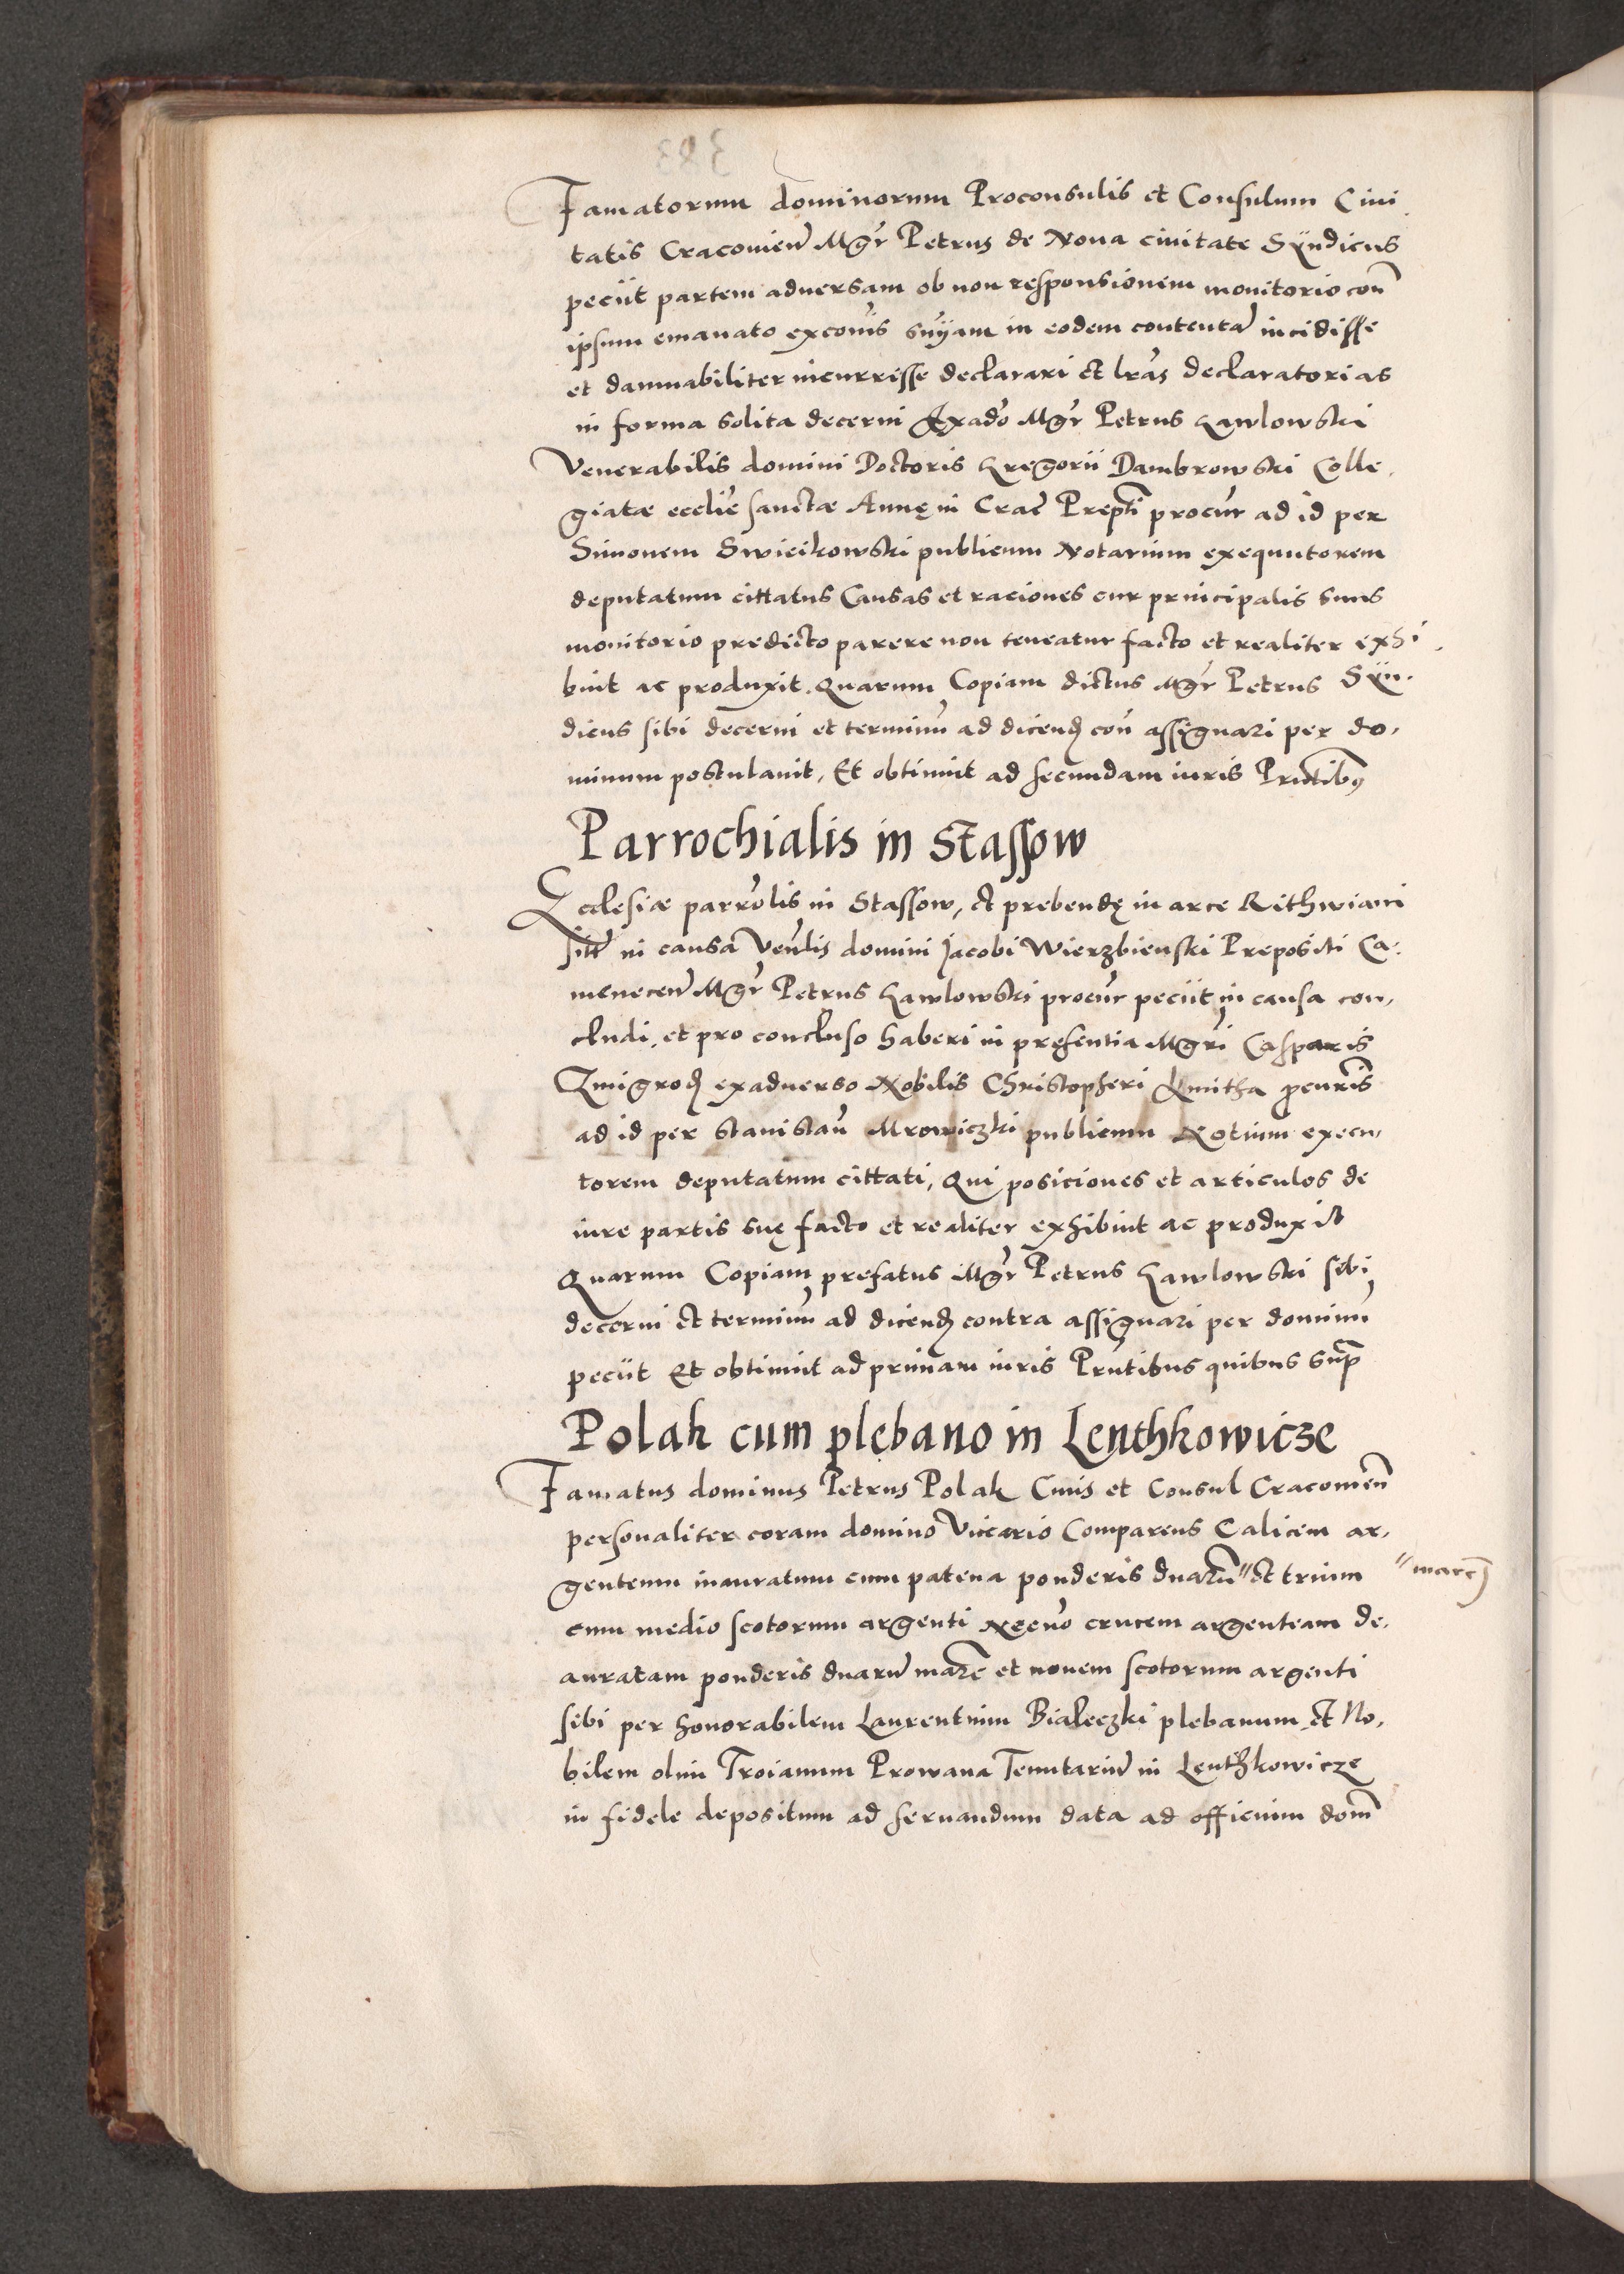 Famatorum dominorum Proconsulis et Consulum Civi
tatis Cracovien̄ Mgr̄ Petrus de Nova civitate Syndicus
peciit partem adversam ob non responsionem monitorio con̄
ipsum emanato excom̄s in eodem contentā incidisse
et damnabiliter incurrisse declarari et lrās declaratorias
in forma solita decerni Exadv̄o Mgr̄ Petrus Gawlowski
Venerabilis domini Doctoris Gregorii Dambrowski Colle,
giatæ eccliē sanctæ Annę in Crac̄ Prepti̅ procūr ad id per
Simonem Swieikowski publicum Notarium exequutorem
deputatum cittatus Causas et raciones cur principalis suus
monitorio predicto parere non teneatur facto et realiter exhi
buit ac produxit. Quarum Copiam dictus Mgr̄ Petrus Syn-
dicus sibi decerni et terminū ad dicend̄ con̄ assignari per do,
minum postulavit, Et obtinuit ad secundam iuris Prn̄tibus
Parrochialis in Stassow
Ecclesiæ parrōlis in Stassow, et prebendę in arce Rithwiani
sitt̄ in causa Venlis̄ domini Jacobi Wierzbienski Prepositi Ca-
menecen̄ Mgr̄ Petrus Gawlowski procūr peciit in causa con,
cludi, et pro concluso haberi in presentia Mgr̄i Casparis
Zmigrod̄ exadverso Nobilis Christopheri Kmitha pcurīs
ad id per Stanislaū Mrowiczki publicum Notium execu,
torem deputatum cittati, Qui posiciones et articulos de
iure partis suę facto et realiter exhibuit ac produxit
Quarum Copiam prefatus Mgr̄ Petrus Gawlowski sibi
decerni et terminū ad dicend̄ contra assignari per dominū
peciit Et obtinuit ad primam iuris Prn̄tibus quibus sup̄
Polak cum plebano in Lenthkowicze
Famatus dominus Petrus Polak Civis et Consul Cracovien̄
personaliter coram domino Vicario Comparens Calicem ar,
genteum inauratum cum patena ponderis duarū" et trium "marc̄
cum medio scotorum argenti Necnō crucem argenteam de,
auratam ponderis duarū marc̄ et novem scotorum argenti
sibi per honorabilem Laurentium Bialeczki plebanum et No,
bilem olim Troianum Prowana Tenutariū in Lenthkowicze
in fidele depositum ad servandum data ad officium dom̄